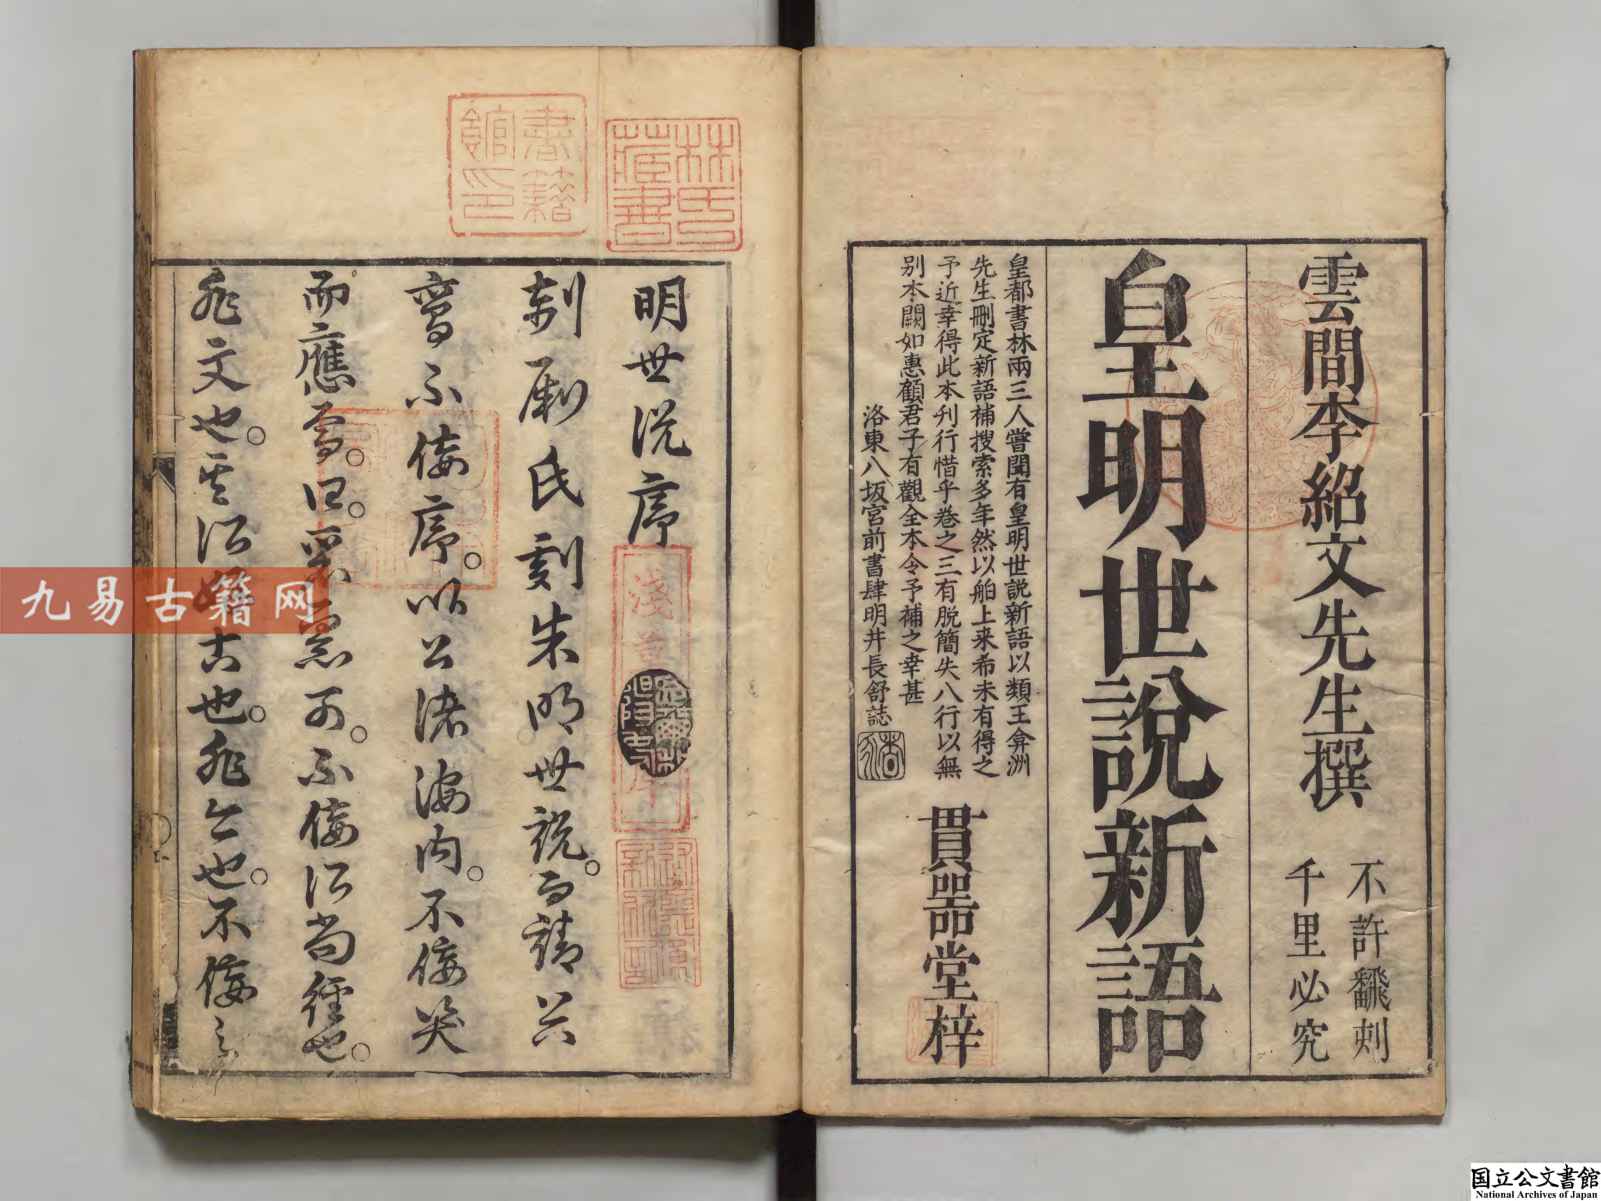 雲間李紹文先生撰
不許翻刻
千里必究
皇明世說新語
皇都書林兩三人嘗聞有皇明世説新語以類王弇洲
先生刪定新語補搜索多年然以舶上来希未有得之
予近幸得此本刋行惜乎卷之三有脱簡失八行以無
别本闕如惠顧君子有觀全本令予補之幸甚
洛東八坂宮前書肆明井長舒誌
貫器堂梓
林氏藏書
書籍館印
明世説序
剞劂氏刻朱明世説。而請
不佞序。以公諸海内。不佞笑
而應焉。曰。可。不佞 尚經也。
非文也。古也。非今也。不佞
九易古籍网
国立公文書館
National Archives of Japan